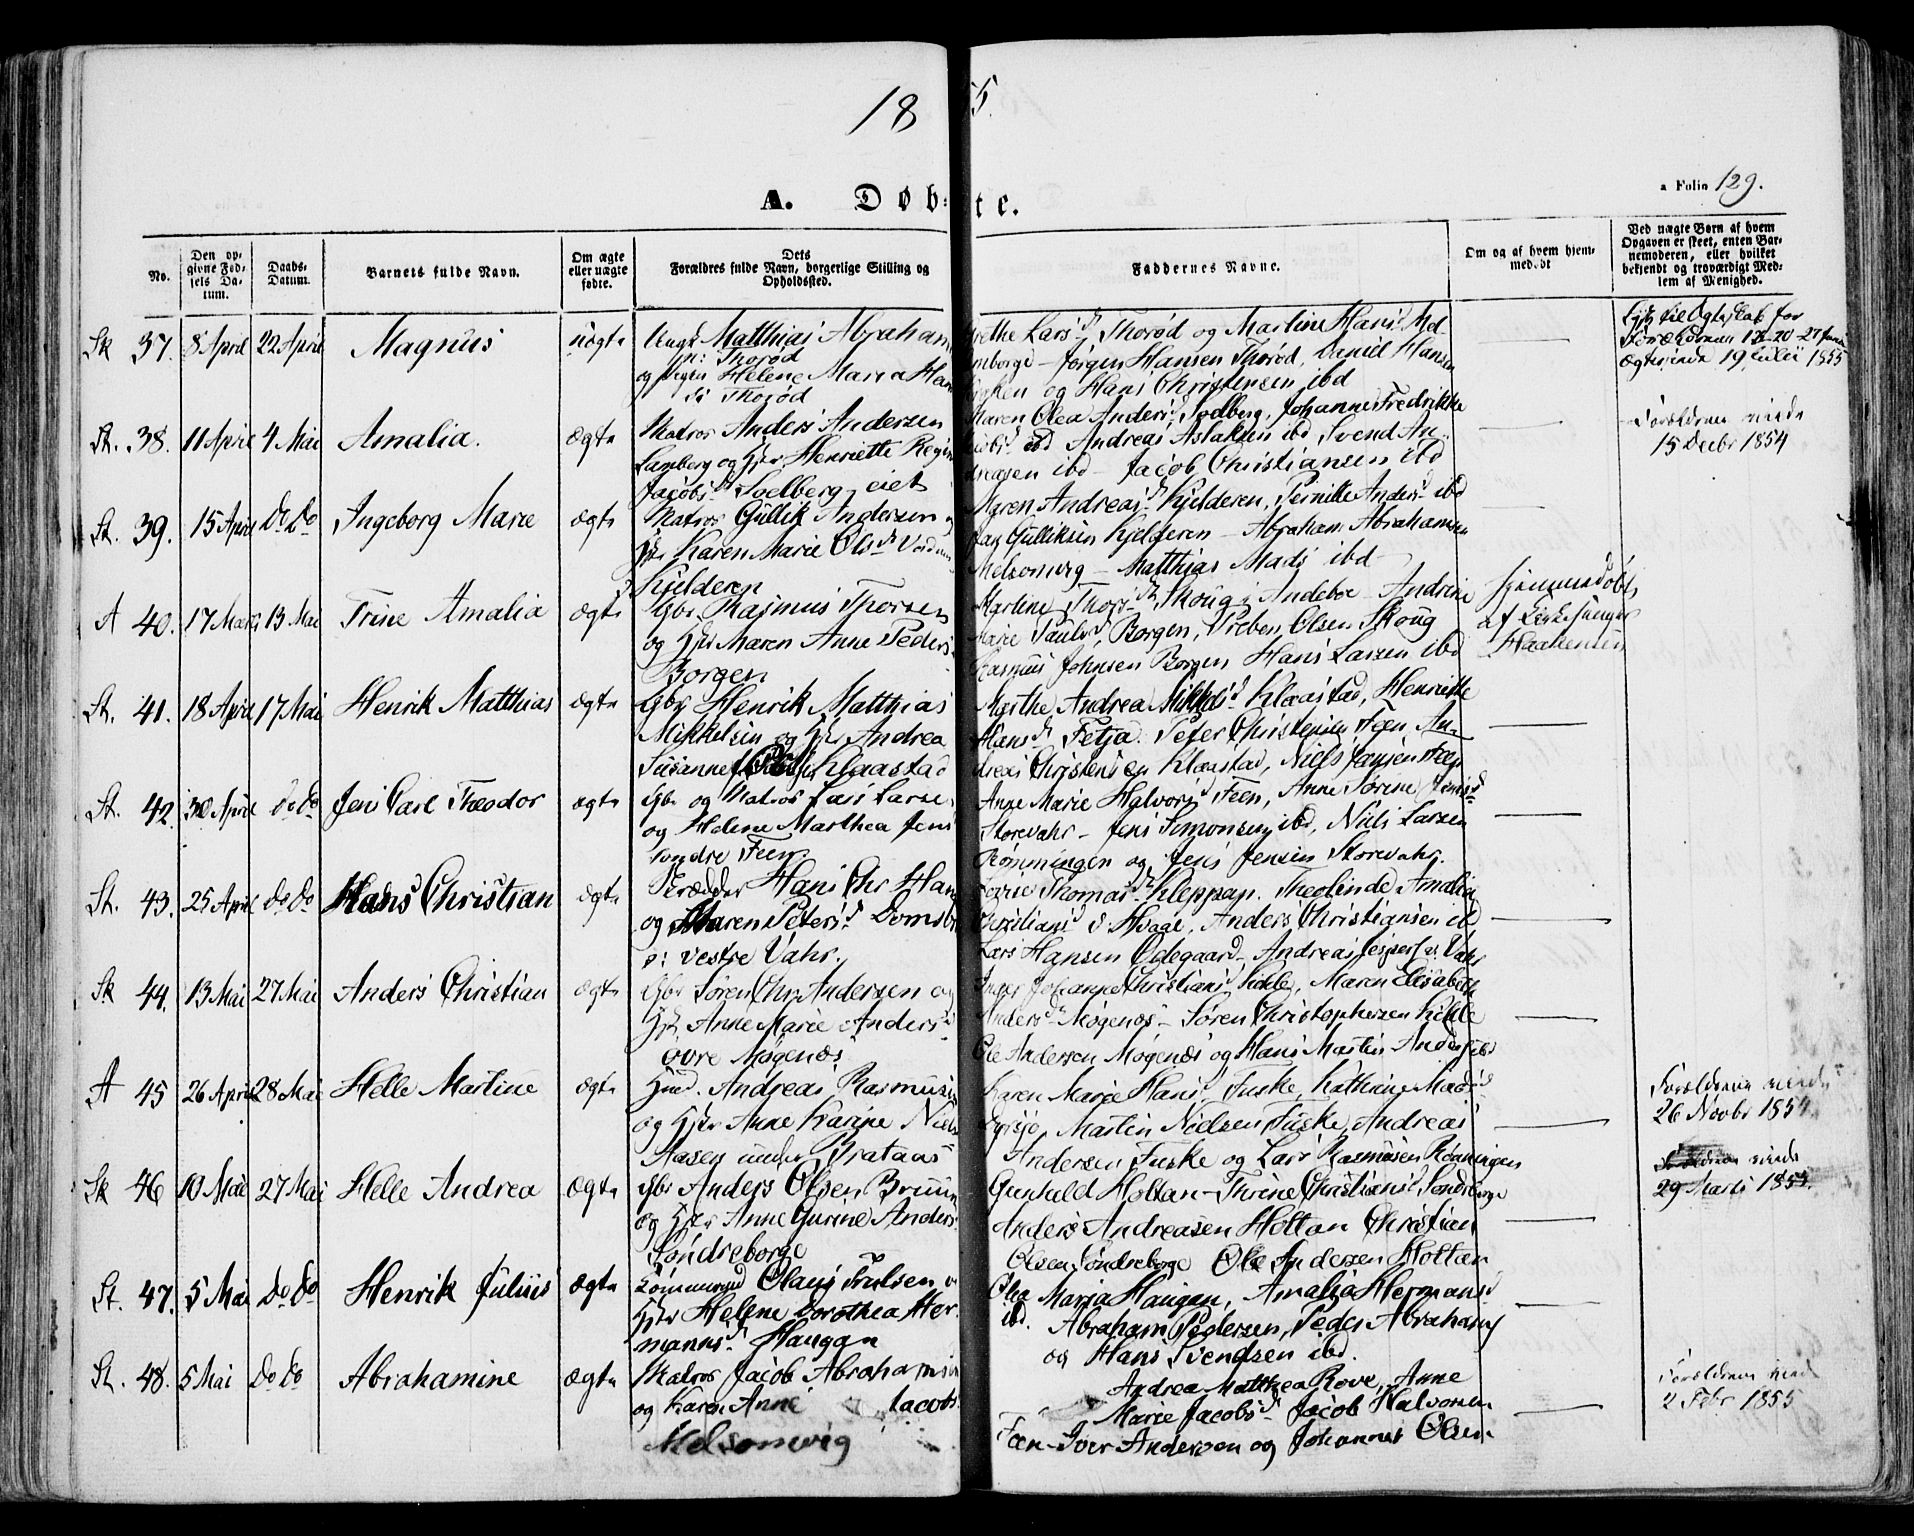 1855.
a Folio 129.
A. Døb-te.
No.
Den op-
givne Fød-
sels Da-
tum.
Daabs-
Datum.
Barnets fulde Navn.
Om ægte
eller uægte
fødte.
Dets
Forældres fulde Navn, borgerlige Stilling og
Opholdssted.
Faddernes Navne.
Om og af hvem hjem-
medøbt
Ved uægte Børn af hvem
Opgaven er skeet, enten Bar-
nemoderen, eller hvilket
bekjendt og troværdigt Med-
lem af Menighed.
Sk 37. 8 April 22 April Magnus uægte
Ungk Matthias Abraham
Thorød
og Pigen Helene Maria Han
Thorød
Grethe Lars d. Thorød og Martine Hans d.
mborge - Jørgen Hansen Thorød, Daniel Hansen
og Hans Christensen ibd
Lyst til Ægteskab for
Forældrene 13-20-27 Juni
Ægteviede 19 Julii 1855
St. 38. 11 April 4 Mai Amalia. ægte
Matros Anders Andersen
Lamberg og Hstr Henriette Regin
Jacobs d. Soelberg eiet
Maren Olea Anders d. Soelberg, Johanne Fredrikke
Jacobs d. ibd Andreas Aslaksen ibd Svend An-
dreasen ibd - Jacob Christiansen ibd
Forældrene viede
15 Decbr 1854
St. 39. 15 April do do Ingeborg Marie ægte
Matros Gullik Andersen og
Hstr Karen Marie Ols d.
Kjelderen
Maren Andreas d. Kjelderen, Pernille Anders d. ibd
Gulliksen Kjelderen - Abraham Abrahamsen
Melsomvig - Matthias Mads ibd
A 40. 17 Marts 13 Mai Trine Amalia ægte
Gbr. Rasmus Thorsen
og Hstr Maren Anne Peders
Borgen
Martine Thors d. Skoug i Andeboe - Andrine
Marie Pauls d. Borgen, Preben Olsen Skoug
Rasmus Johnsen Borgen Hans Larsen ibd
hjemmedøbt
af Kirkesanger
Haakensen
St. 41. 18 April 17 Mai Henrik Matthias ægte
Gbr Henrik Matthias
Mikkelsen og Hstr Andrea
Susanne Klaastad
Marthe Andrea Mikkels d. Klaastad, Henriette
Hans d. Fetja. Peter Christensen Feen, An-
dreas Christensen Klaastad, Niels Jansen Feen
St. 42. 30 April do do Jens Carl Theodor ægte
Gbr og Matros Lars Larsen
og Helene Marthea Jens
Søndre Feen.
Anne Marie Halvors d. Feen, Anne Sørine Jens d.
Storevahr - Jens Simonsen ibd, Niels Larsen
Rømmingen og Jens Jensen Storevahr.
St. 43. 25 April do do Hans Christian ægte
Skrædder Hans Chr Hans
og Maren Peters d.
vestre Vahr.
Thomas d. Kleppan. Theolinde Amalia
Christians d. Hvaae, Anders Christiansen ibd
Lars Hansen Ødegaard - Andreas Jespers v. Vahr
Sk 44. 13 Mai 27 Mai Anders Christian ægte
Gbr Søren Chr Andersen og
Hstr Anne Marie Anders d.
øvre Møgenæs
Inger Johanne Christians d. Kihle, Maren Elisabeth
Anders d. Møgenæs - Søren Christophersen Kihle
Ole Andersen Møgenæs og Hans Martin Anders ibd
A 45 26 April 28 Mai Helle Martine ægte
Hmd. Andreas Rasmusen
og Hstr Anne Karine Niels
Aasen under Prataas
Karen Marie Hans d. Fuske, Kathrine Mads d.
Martin Nielsen Fuske, Andreas
Andersen Fuske og Lars Rasmusen Rønningen
Forældrene viede
26 Novbr 1854.
Sk 46 10 Mai 27 Mai Helle Andrea ægte
Gbr Anders Olsen Bruun
og Hstr Anne Gurine Anders
Søndreborge
Gunhild Holtan - Thrine Christians d. Søndreborge
Anders Andreasen Holtan Christian
Olsen Søndreborge Ole Andersen Holtan
Forældrene viede
29 Marts 1855.
St. 47. 5 Mai do do Henrik Julius ægte
Tømmermd Olaus Trulsen og
Hstr Helene Dorothea Her-
manns d. Haugan
Olea Maria Haugan, Amalia Hermans d.
ibd. Abraham Pedersen, Peder Abrahams
og Hans Svendsen ibd.
St. 48. 5 Mai do do Abrahamine ægte
Matros Jacob Abrahamsen
og Karen Anne Jacobs
Melsomvig
Andrea Matthea Rove, Anne
Marie Jacobs d. Jacob Halvorsen
Feen - Iver Andersen og Johannes Olsen
Forældrene viede
2 Febr 1855